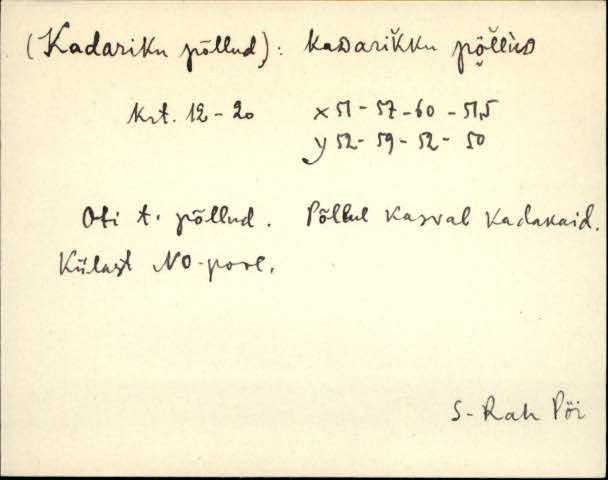 (Kadariku põllud): kaᴅarik̆ku põ̮l̆lùᴅ
krt. 12-20 x 51 - 57 - 60 - 51,5
y 52 - 59 - 52 - 50
Oti t. põllud. Põllul kasvab kadakaid.
Külast NO-pool.
S-Rah Pöi